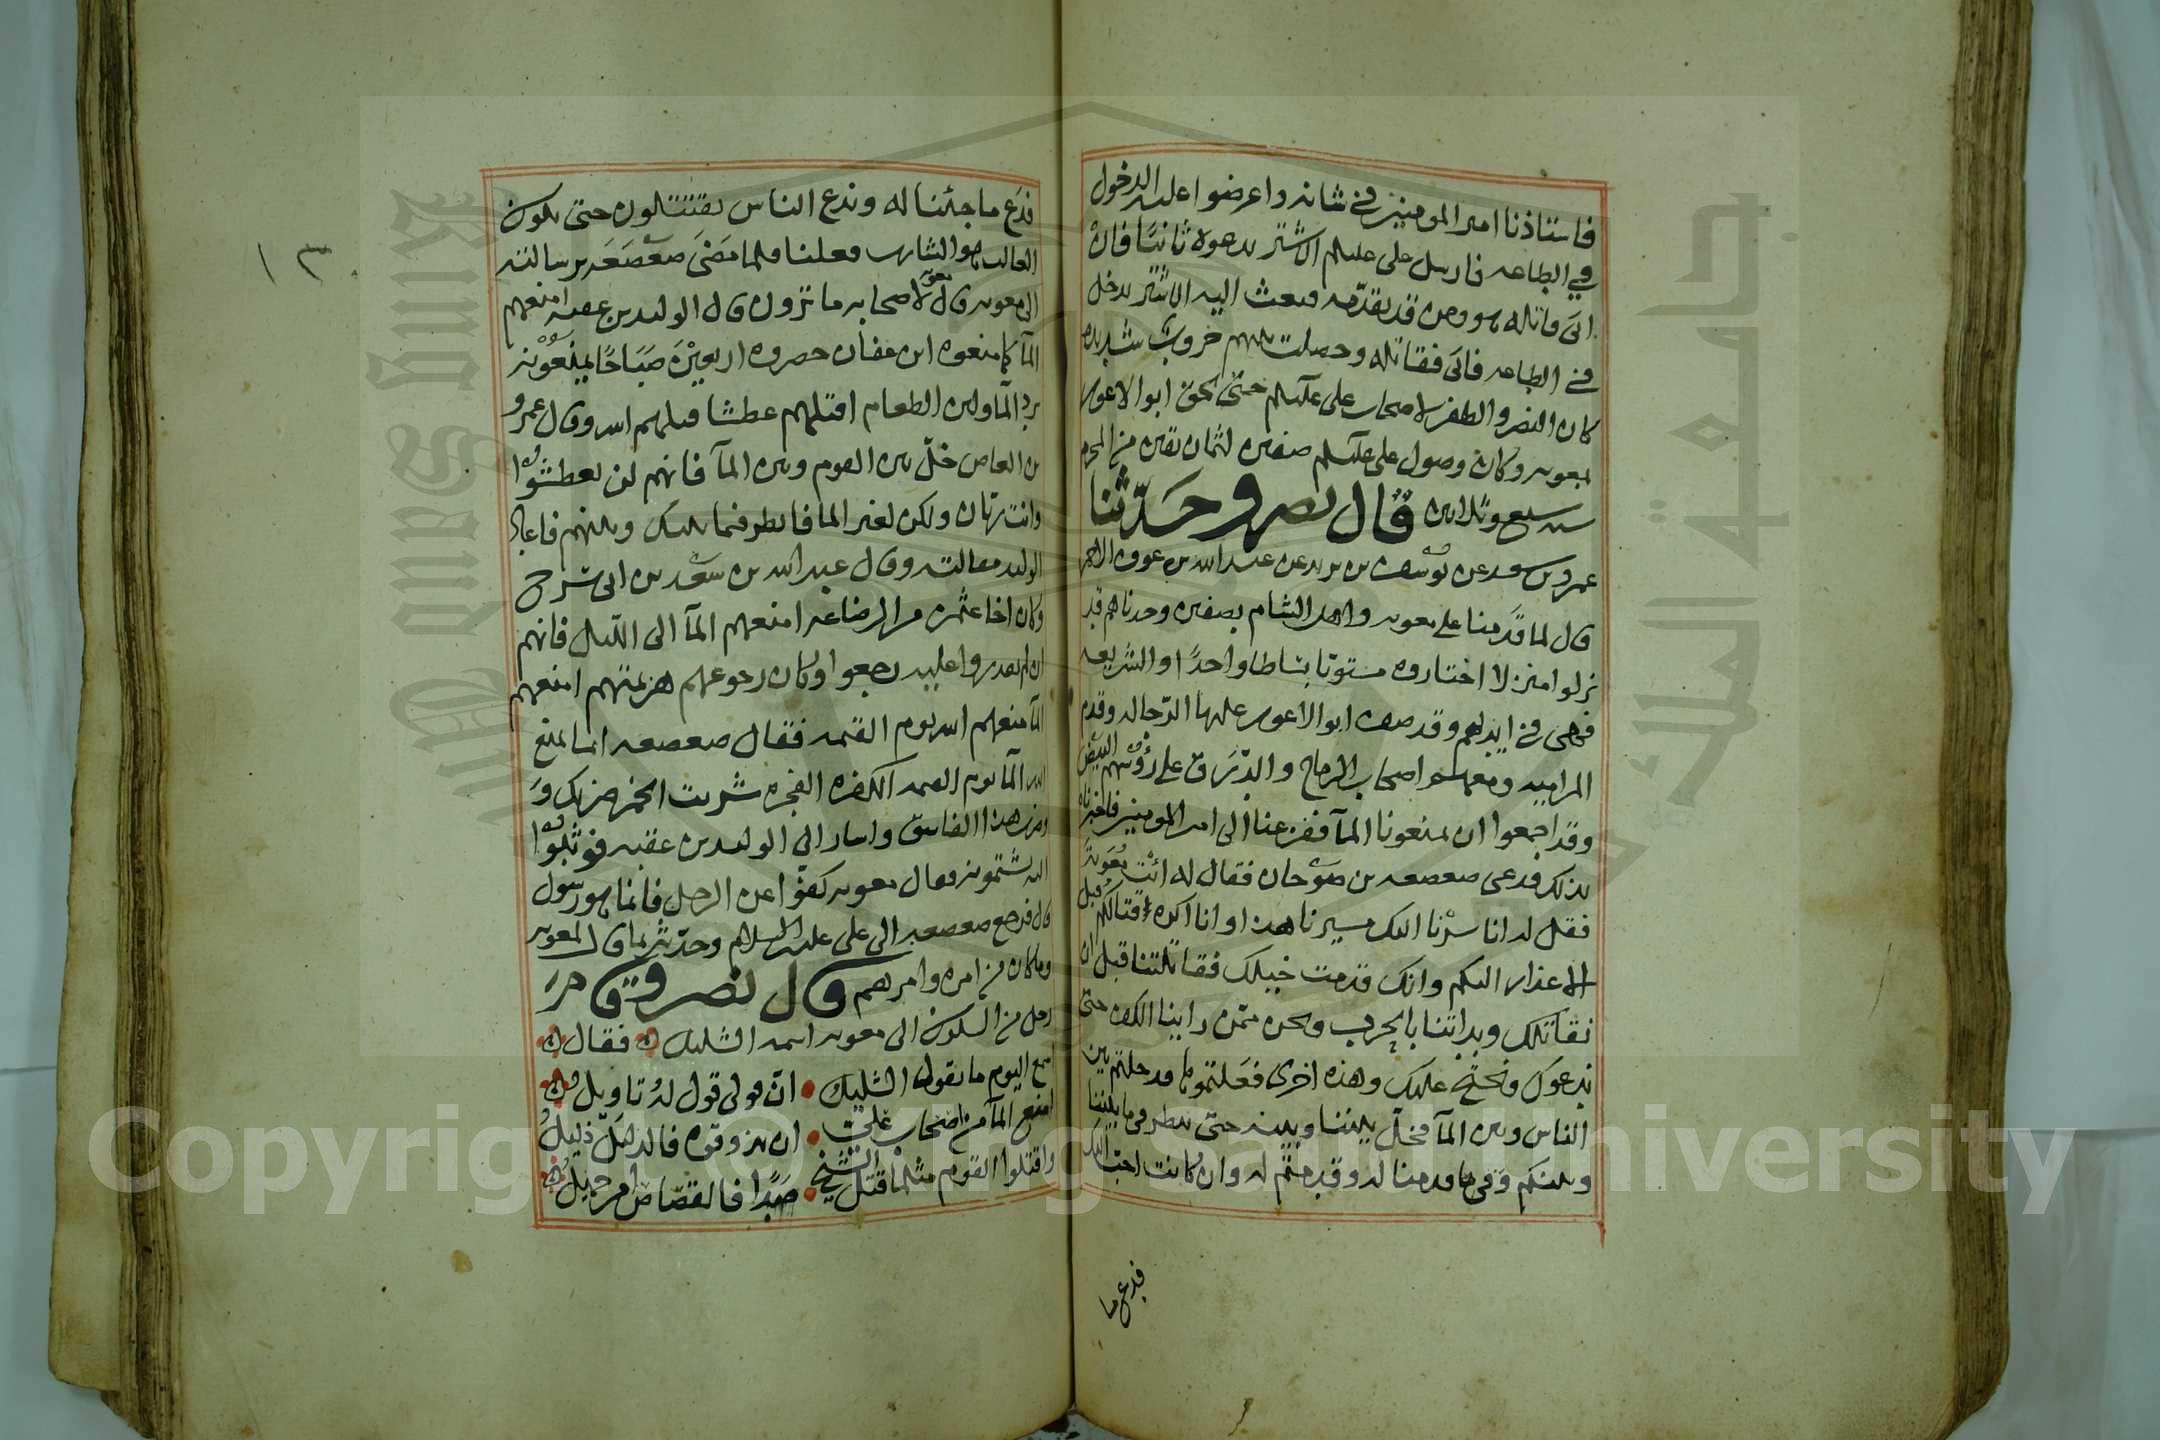 فاستاذنا امير المومنين في شانه واعرضوا عليه الدخول
في الطاعه فارسل علي عليلم الاشتر يدعوه ثانيًا فان
ابى قاتله هو ومن قد تقدّمه فبعث اليه الاشتر يدخل
في الطاعه فابى فقاتله وحصلت بينهم حروب شديده
كان النصر والظفر لاصحاب علي عليلم حتى لحق ابو الاعور
بمعويه وكان وصول علي عليلم صفين لثمان بقين من المحرم
سنه سبع وثلاثين قال نصر وحدّثنا
عمرو بن سعد عن يوسف بن يزيد عن عبد الله بن عوف الاحمر
قال لما قدمنا على معويه واهل الشام بصفين وجدناهم قد
نزلوا منزلا اختاروه مستويا بساطا واحدًا والشريعه
فهي في ايديهم وقد صف ابو الاعور عليها الرجاله وقدم
المراميه ومعهم اصحاب الرماح والدّرق على رؤسهم البيض
وقد اجمعوا ان يمنعونا المآ ففزعنا الى امير المومنين فاخبرناه
بذلك فدعى صعصعه بن صوحان فقال له ائت معوية
فقل له انا سرنا اليك مسيرنا هذا وانا اكره قتالكم قبل
الاعذار اليكم وانك قدمت خيلك فقاتلتنا قبل ان
نقاتلك وبداتنا بالحرب ونحن ممّن راينا الكف حتى
ندعوك ونحتج عليك وهذه اخرى فعلتموها قد حلتم بين
الناس وبين المآ فخلّ بيننا وبينه حتى ننظر في ما بيننا
وبينكم وفي ما قدمنا له وقدمتم له وان كانت احب اليك
فدع ما
فندع ما جئنا له وندع الناس يقتتلون حتى يكون
الغالب هو الشارب فعلنا فلما مضى صعصعه برسالته
الى معويه قال معويه لاصحابه ما ترون قال الوليد بن عقبه امنعهم
المآ كما منعوه ابن عفان حصروه اربعين صباحًا يمنعونه
برد المآ ولين الطعام اقتلهم عطشا قتلهم الله وقال عمرو
بن العاص خلّ بين القوم وبين المآ فانهم لن يعطشوا
وانت ريان ولكن لغير الما فانظر فيما بينك وبينهم فاعاد
الوليد مقالته وقال عبد الله بن سعد بن ابي سرح
وكان اخا عثمن من الرضاعه امنعهم المآ الى الليل فانهم
ان لم يقدروا عليه رجعوا وكان رجوعهم هزيمتهم امنعهم
المآ منعهم الله يوم القيمه فقال صعصعه انما يمنع
الله المآ يوم القيمه الكفره الفجره شربت الخمر ضربك و
ضرب هذا الفاسق واشار الى الوليد بن عقبه فوثبوا
اليه يشتمونه فقال معويه كفوا عن الرجل فانما هو رسول
قال فرجع صعصعه الى علي عليه السلام وحدّثه بما قال معويه
وما كان من امره وامرهم قال نصر وقام
رجل من السكون الى معويه اسمه الشليك فقال
اسمع اليوم ما يقول الشليك ان قولي قول له تاويل
امنع المآ من اصحاب علي ان يذوقوه فالذليل ذليل
واقتلوا القوم مثلما قتل الشيخ صبدًا فالقصاص امر جميل
١٣
Copyright © King Saud University
King Saud University
جامعة الملك سعود